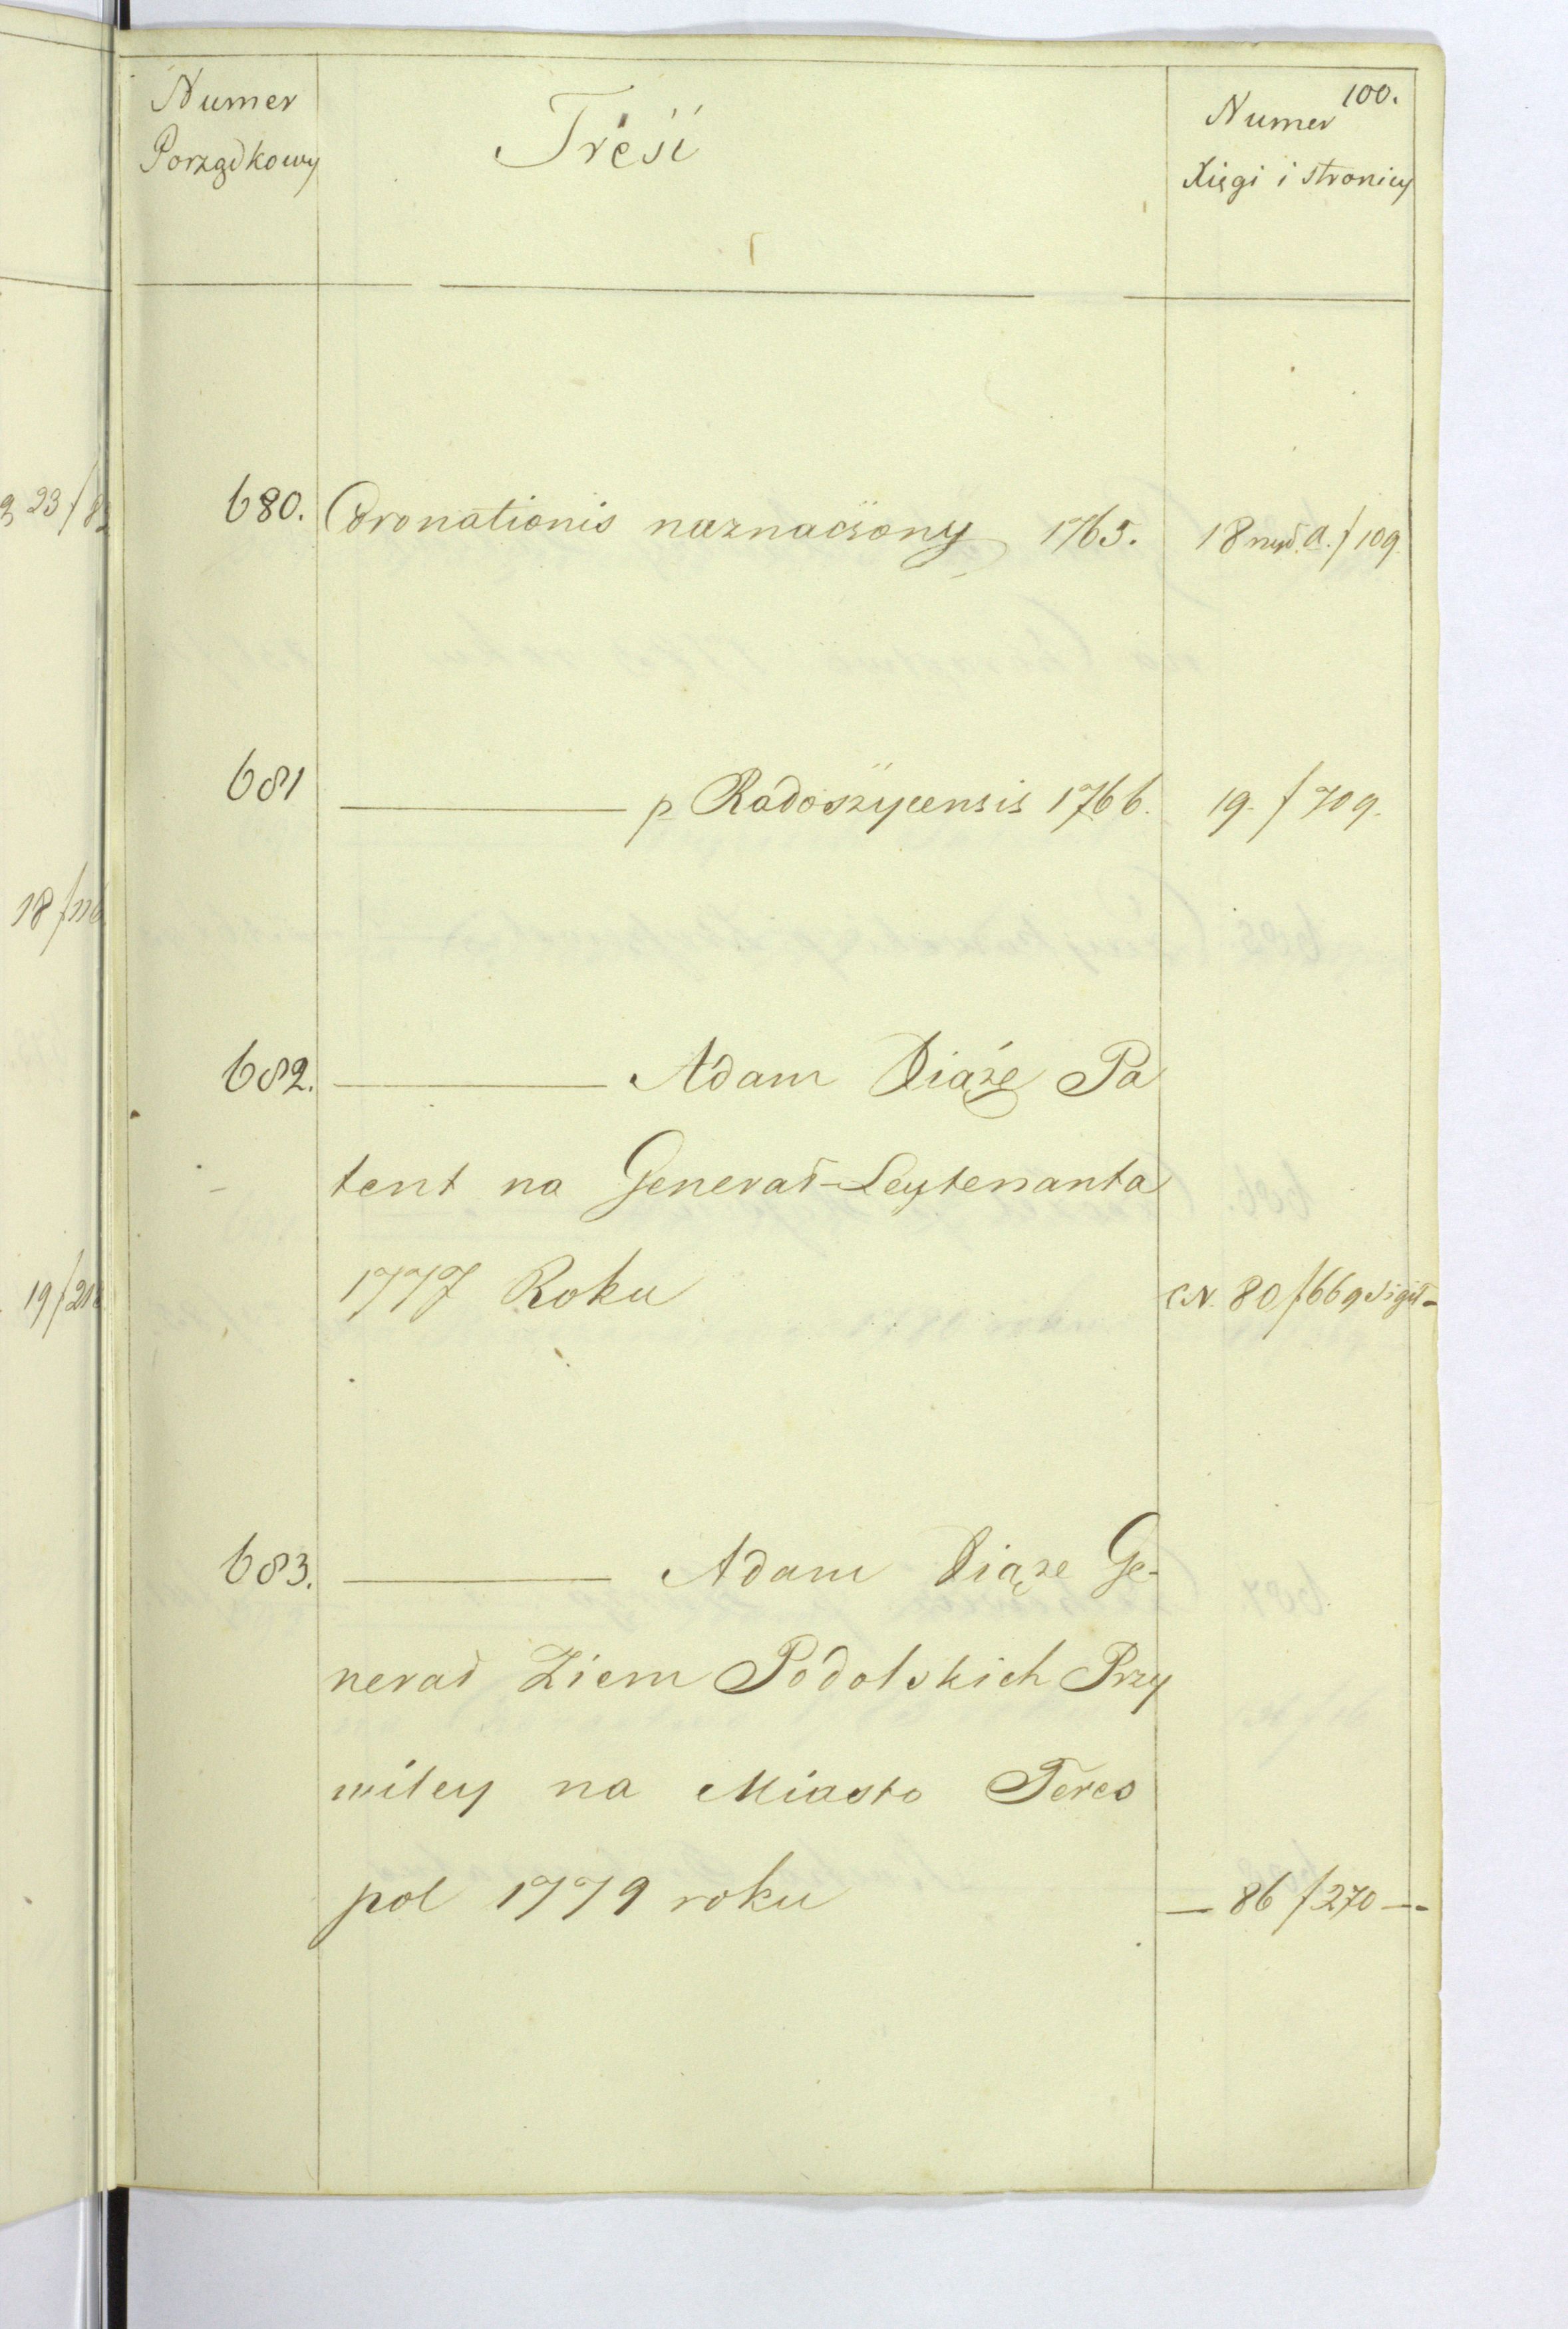 Numer
Porządkowy
Treść
100.
Numer
Xięgi i stronicy
23/
680. Coronationis naznaczony 1765. 18 f 109
681 ——— p Radoszycensis 1766. 19. f 709.
18/
682. ——— Adam Xiąże Pa
tent na Generał-Leytenanta
1777 Roku CN. 80 f 669 sigil-
19/
683. ——— Adam Xiąze Ge-
nerał Ziem Podolskich Przy
wiley na Miasto Teres
pol 1779 roku — 86 f 270 —